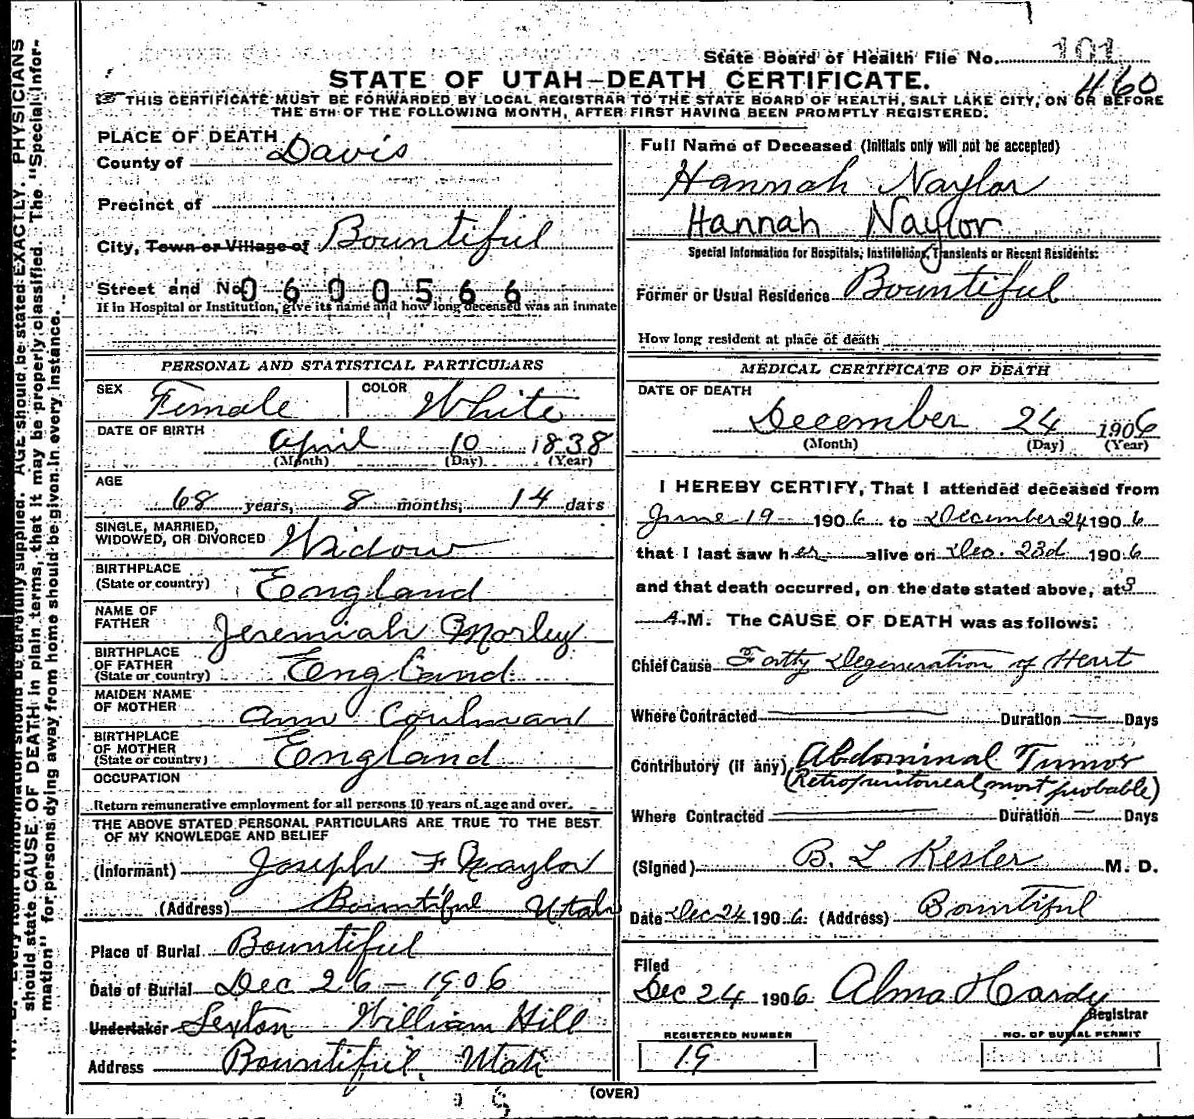 State Board of Health File No. 101
460
STATE OF UTAH—DEATH CERTIFICATE.
THIS CERTIFICATE MUST BE FORWARDED BY LOCAL REGISTRAR TO THE STATE BOARD OF HEALTH, SALT LAKE CITY, ON OR BEFORE
THE 5TH OF THE FOLLOWING MONTH, AFTER FIRST HAVING BEEN PROMPTLY REGISTERED.
PLACE OF DEATH
County of Davis
Precinct of
City, Town or Village of Bountiful
Street and No. 0600566
If in Hospital or Institution, give its name and how long deceased was an inmate
PERSONAL AND STATISTICAL PARTICULARS
SEX Female COLOR White
DATE OF BIRTH April 10 1838
(Month) (Day) (Year)
AGE
68 years, 8 months, 14 days
SINGLE, MARRIED,
WIDOWED, OR DIVORCED Widow
BIRTHPLACE
(State or country) England
NAME OF
FATHER Jeremiah Morley
BIRTHPLACE
OF FATHER
(State or country) England
MAIDEN NAME
OF MOTHER Ann Coulman
BIRTHPLACE
OF MOTHER
(State or country) England
OCCUPATION
Return remunerative employment for all persons 10 years of age and over.
THE ABOVE STATED PERSONAL PARTICULARS ARE TRUE TO THE BEST
OF MY KNOWLEDGE AND BELIEF
(Informant) Joseph F Naylor
(Address) Bountiful Utah
Place of Burial Bountiful
Date of Burial Dec 26 - 1906
Undertaker Sexton William Hill
Address Bountiful, Utah
Full Name of Deceased (Initials only will not be accepted)
Hannah Naylor
Hannah Naylor
Special Information for Hospitals, Institutions, Transients or Recent Residents:
Former or Usual Residence Bountiful
How long resident at place of death
MEDICAL CERTIFICATE OF DEATH
DATE OF DEATH
December 24 1906
(Month) (Day) (Year)
I HEREBY CERTIFY, That I attended deceased from
June 19 1906 to December 24 1906
that I last saw her alive on Dec. 23d 1906
and that death occurred, on the date stated above, at 3
A.M. The CAUSE OF DEATH was as follows:
Chief Cause Fatty Degeneration of Heart
Where Contracted Duration Days
Contributory (if any) Abdominal Tumor
(Retroperitoneal, most probable)
Where Contracted Duration Days
(Signed) B. L Kesler M. D.
Date Dec 24 1906 (Address) Bountiful
Filed
Dec 24 1906 Alma Hardy
Registrar
REGISTERED NUMBER
19
NO. OF BURIAL PERMIT
(OVER)
Every item of information should be carefully supplied. AGE should be stated EXACTLY. PHYSICIANS
should state CAUSE OF DEATH in plain terms, that it may be properly classified. The "Special Infor-
mation" for persons dying away from home should be given in every instance.